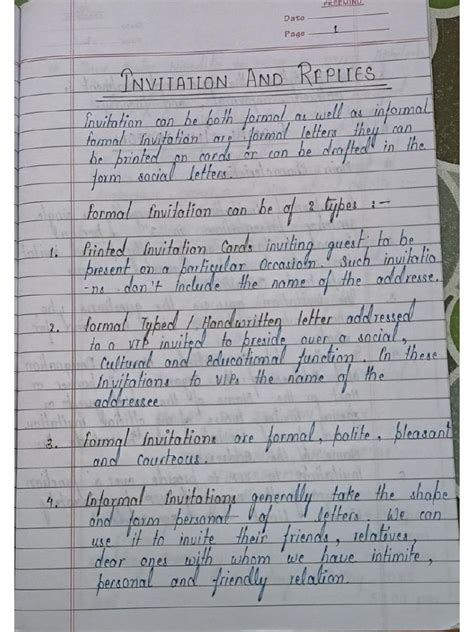 FREEMIND
Date
Page 1
INVITATION AND REPLIES
Invitation can be both formal as well as informal
formal Invitation are formal letters they can
be printed on cards or can be drafted in the
form social letters.
Formal Invitation can be of 2 types :-
1. Printed Invitation Cards inviting guest, to be
present on a particular Occasion. Such invitatio
-ns don't include the name of the addresse.
2. Formal Typed / Handwritten letter addressed
to a VIP invited to preside over a social,
Cultural and educational function. In these
Invitations to VIPs the name of the
addressee
3. Formal Invitations are formal, polite, pleasant
and courteous.
4. Informal Invitations generally take the shape
and form personal of letters. We can
use it to invite their friends, relatives,
dear ones with whom we have intimite,
personal and friendly relation.